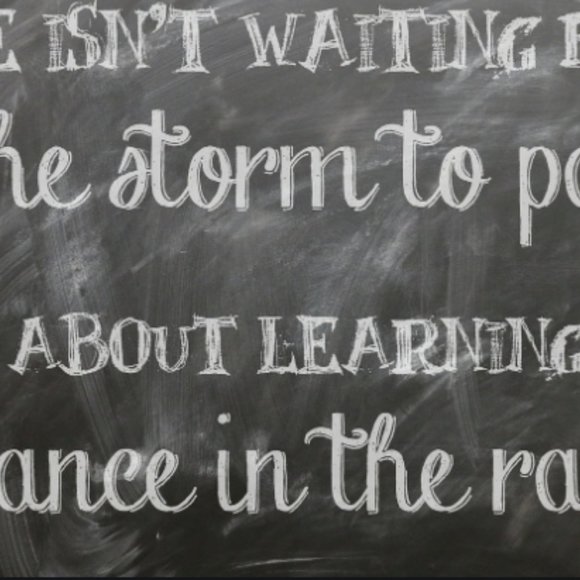 E ISN'T WAITING
he storm to
ABOUT LEARNING
ance in the ra